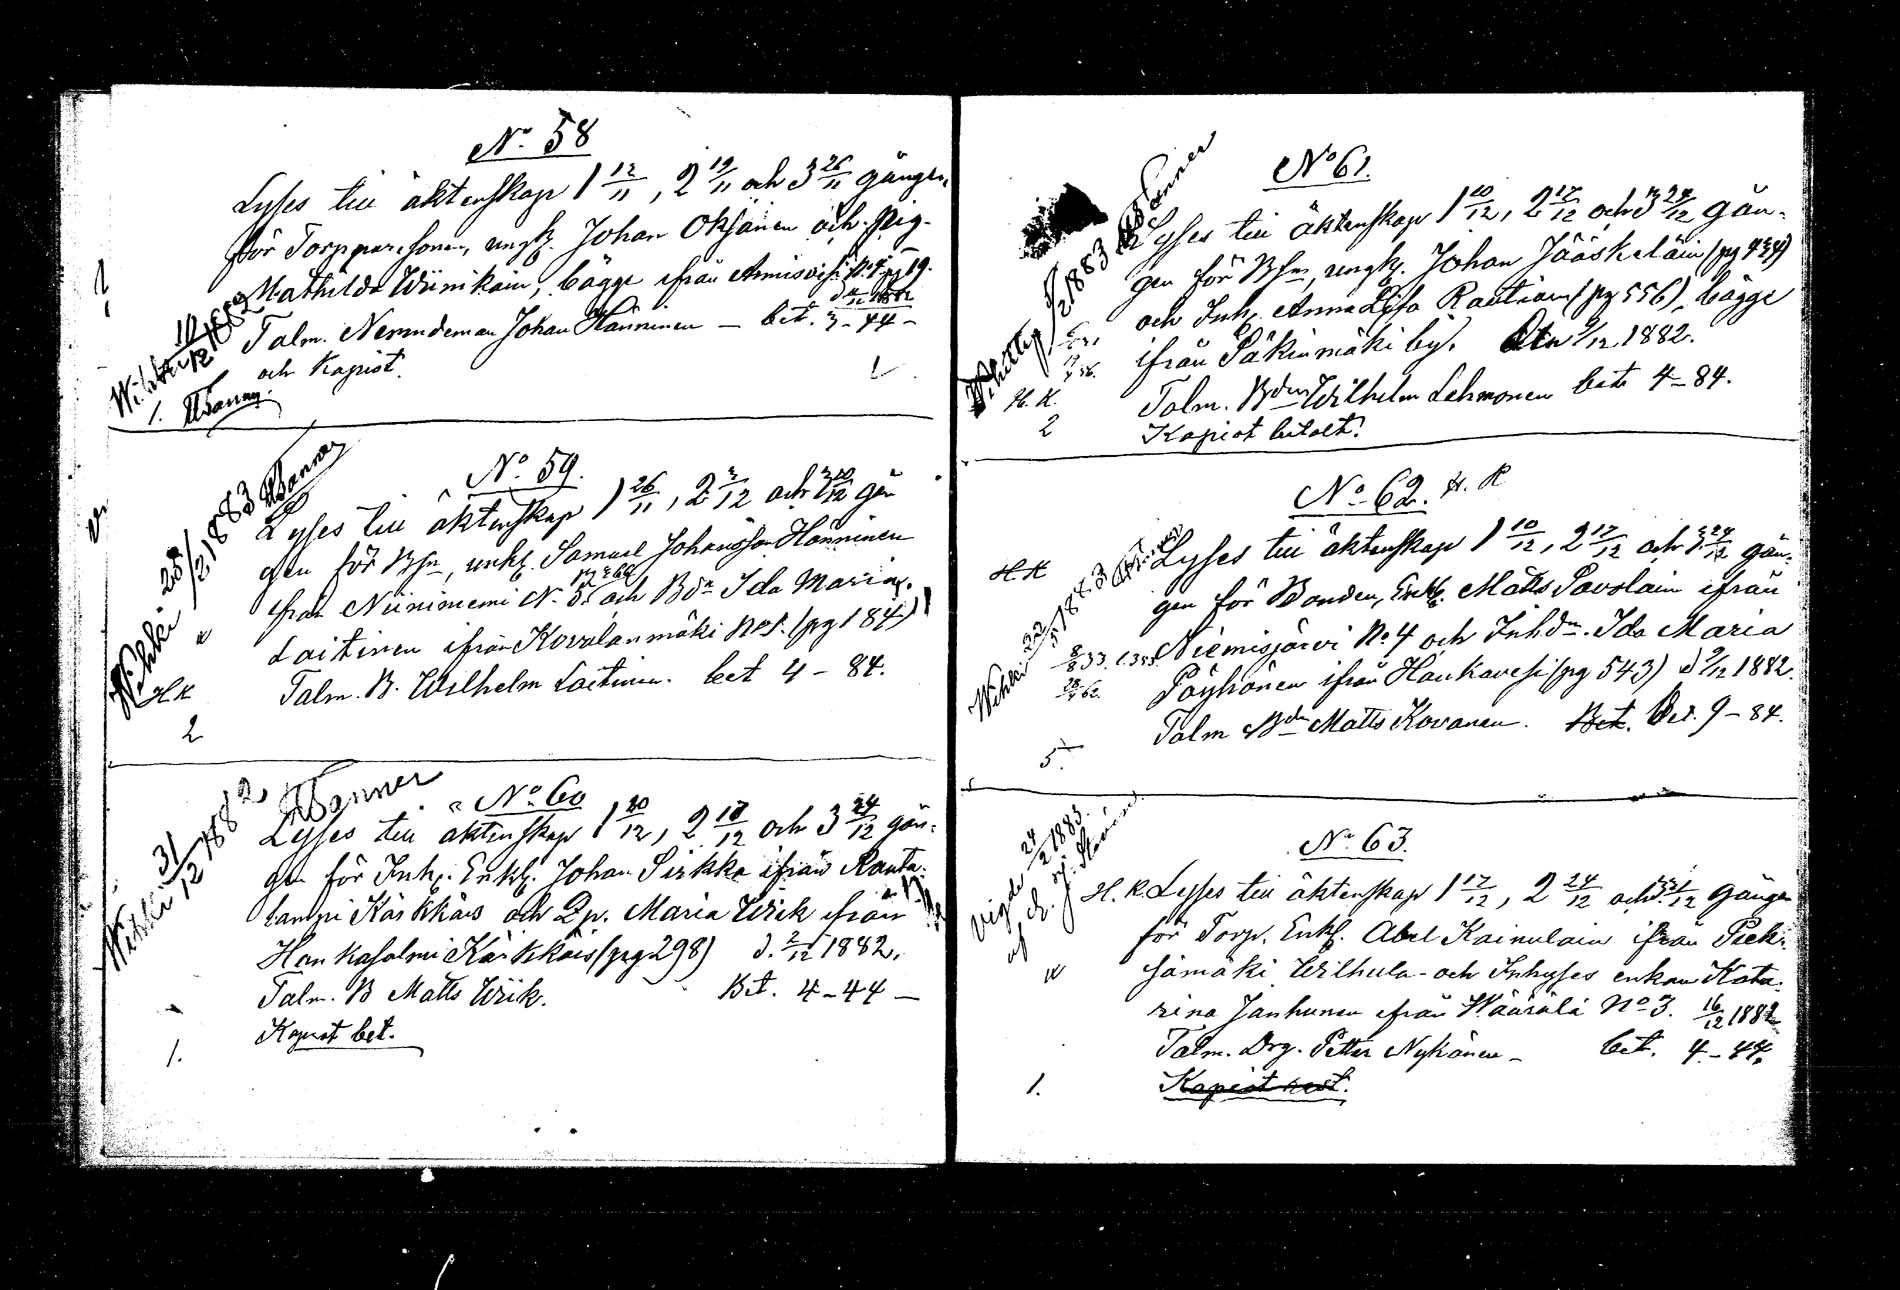 No. 58
Lyses till äktenskap 1 12/11, 2 19/11 och 3 26/11 gången
för Torpparesonen, ungk. Johan Oksanen och pig.
Mathilda Wiinikain, bägge ifrån Armisvesi No 4 pg 19.
Talm. Nemndeman Johan Hänninen — bet. 3-44-
och Kapist.
Wihki 10/12 1882
1. HBanner
No. 59.
Lyses till äktenskap 1 26/11, 2 3/12 och 3 10/12 gån
gen för Bsn, unkl. Samuel Johansson Hänninen
ifrån Niinimemi No. 5. och Bdr Ida Maria
Laitinen ifrån Kovalanmäki No 1. (pg 184)
Talm. B. Wilhelm Laitinen. bet 4 - 84.
Wihki 28/2 1883 HBanner
H K
2
No. 60
Lyses till äktenskap 1 10/12, 2 17/12 och 3 24/12 gån-
gen för Inh. Enkl. Johan Sirkka ifrån Rauta-
lampi Kärkkäis och Dp. Maria Wiik ifrån
Hankasalmi Kärkkäis (pg 298) d. 2/12 1882.
Talm. B Matts Wiik. Bet. 4-44 —
Kapist bet.
Wihki 31/12 1882 HBanner
1.
No 61.
Lyses till äktenskap 1 10/12, 2 17/12 och 3 24/12 gån-
gen för Bsn, ungk. Johan Jääskeläin (pg 434)
och Inh. Anna Lisa Rautiain (pg 556), bägge
ifrån Säkinmäki by. Den 9/12 1882.
Talm. Bden Wilhelm Lehmonen bet 4-84.
Kapist betalt.
H. K.
2
No. 62. H. K
Lyses till äktenskap 1 10/12, 2 17/12 och 3 24/12 gån-
gen för Bonden, Enkl. Matts Pavolain ifrån
Niemisjärvi No. 4 och Inhdr. Ida Maria
Pöyhönen ifrån Haukavesi (pg 543) d 9/12 1882.
Talm Bden Matts Kovanen. Bet. Bet. 9-84.
H. K
5.
No. 63.
H. K. Lyses till äktenskap 1 17/12, 2 24/12 och 3 31/12 gången
för Torp. Enkl. Abel Kainulain ifrån Piek-
sämäki Wilhula- och Inhyses enkan Kata-
rina Janhunen ifrån Häärälä No 3. 16/12 1882
Talm. Drg. Petter Nykänen - bet. 4-44.
Kapist rest.
Vigde 24/2 1883.
1.